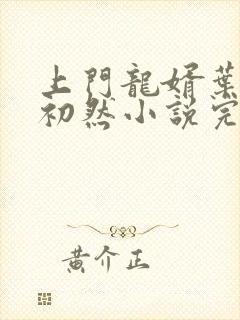 上門龍婿葉
初然小說完
黃介正